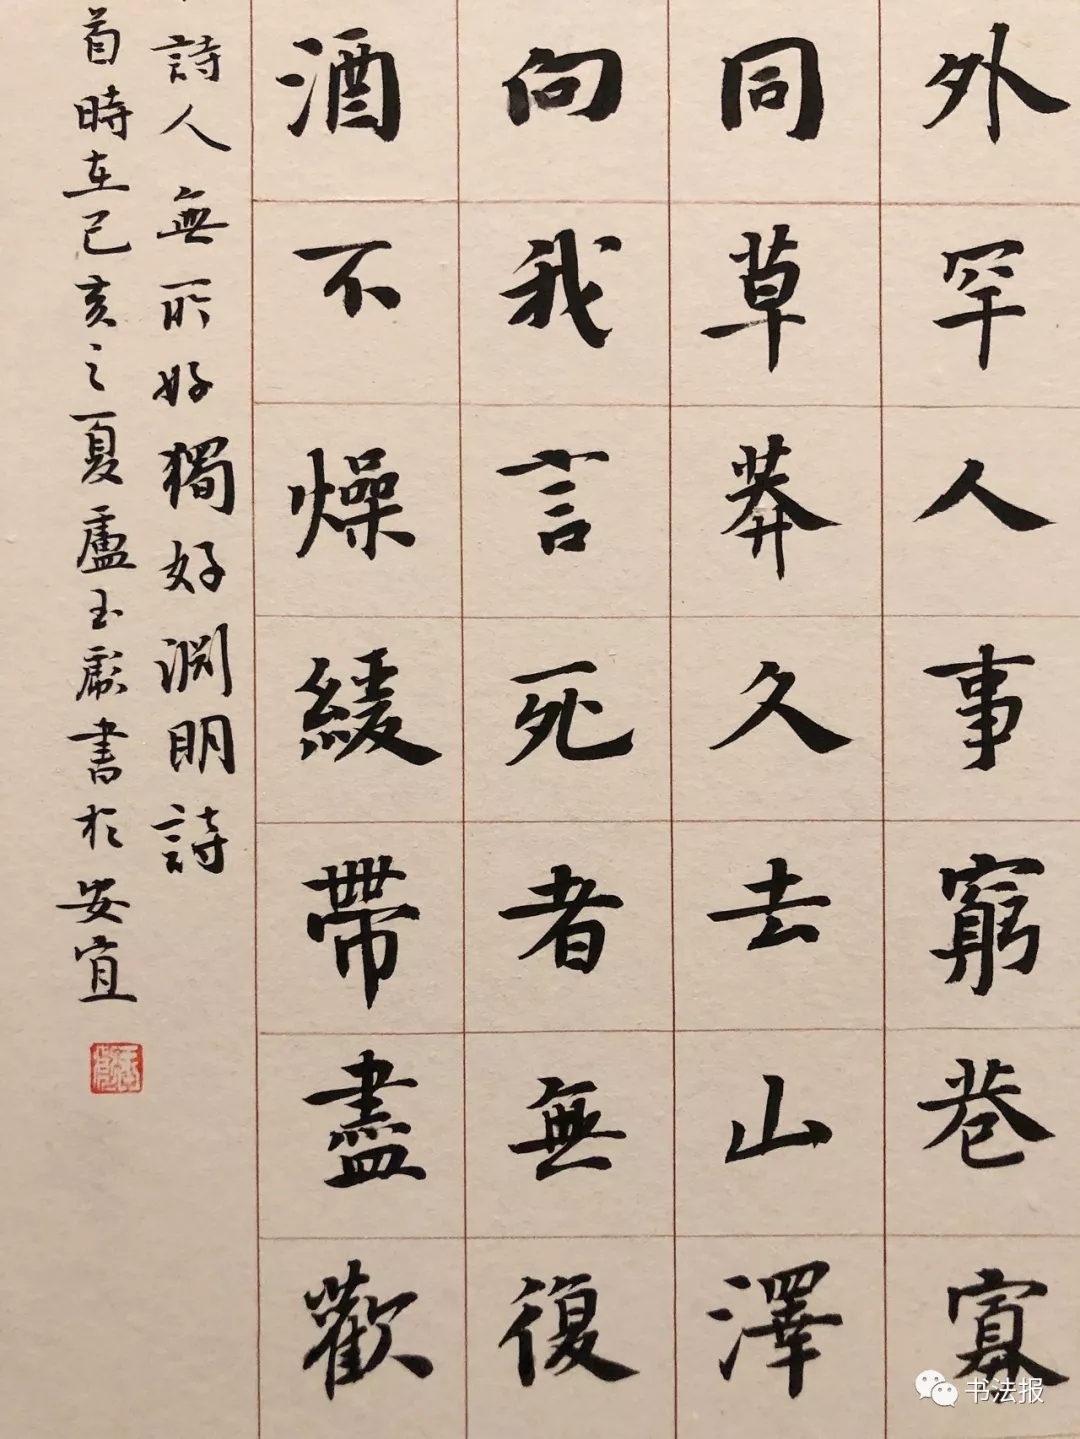 外罕人事窮巷寡
同草莽久去山澤
向我言死者無復
酒不燥緩帶盡歡
詩人無所好獨好淵明詩
首時在己亥之夏盧玉獻書於安宜
书法报